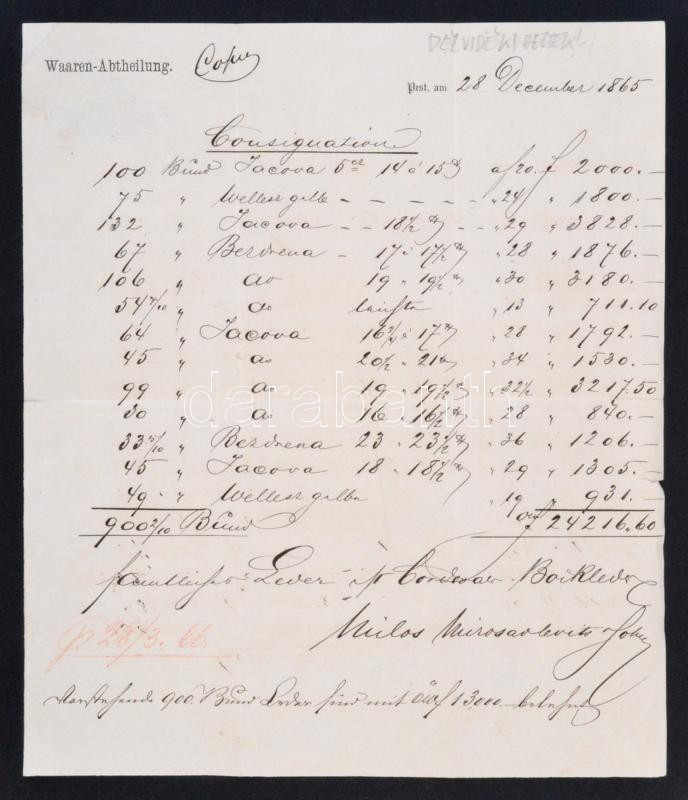 DÉLVIDÉKI
Waaren-Abtheilung. Copie
Pest, am 28 December 1865
Consignation
100 Bund Jacova 5er 14 a 15 a f 20. f 2000.–
75 " Wellest gelbe – – – – " 24 " 1800.–
132 " Jacova – – 18 1/2 " 29 " 3828.–
67 " Bezdrena – 17 a 17 1/2 " 28 " 1876.–
106 " do 19 " 19 1/2 " 30 " 3180.–
54 7/10 " do leichte " 13 " 711.10
64 " Jacova 16 3/4 a 17 " 28 " 1792.–
45 " do 20 1/2 " 21 " 34 " 1530.–
99 " do 19 " 19 1/2 " 32 1/2 " 3217.50
30 " do 16 " 16 1/2 " 28 " 840.–
33 5/10 " Bezdrena 23 " 23 1/2 " 36 " 1206.–
45 " Jacova 18 " 18 1/2 " 29 " 1305.–
49 " Wellest gelbe " 19 " 931.–
900 2/10 Bund öw f 24216.60
sämtliches Leder Corduan Bockleder
Milos Mirosavlevits Sohn
p 28/3. 66.
Vorstehende 900. Bund Leder sind mit öwf 13000.– belehnt
darabanth